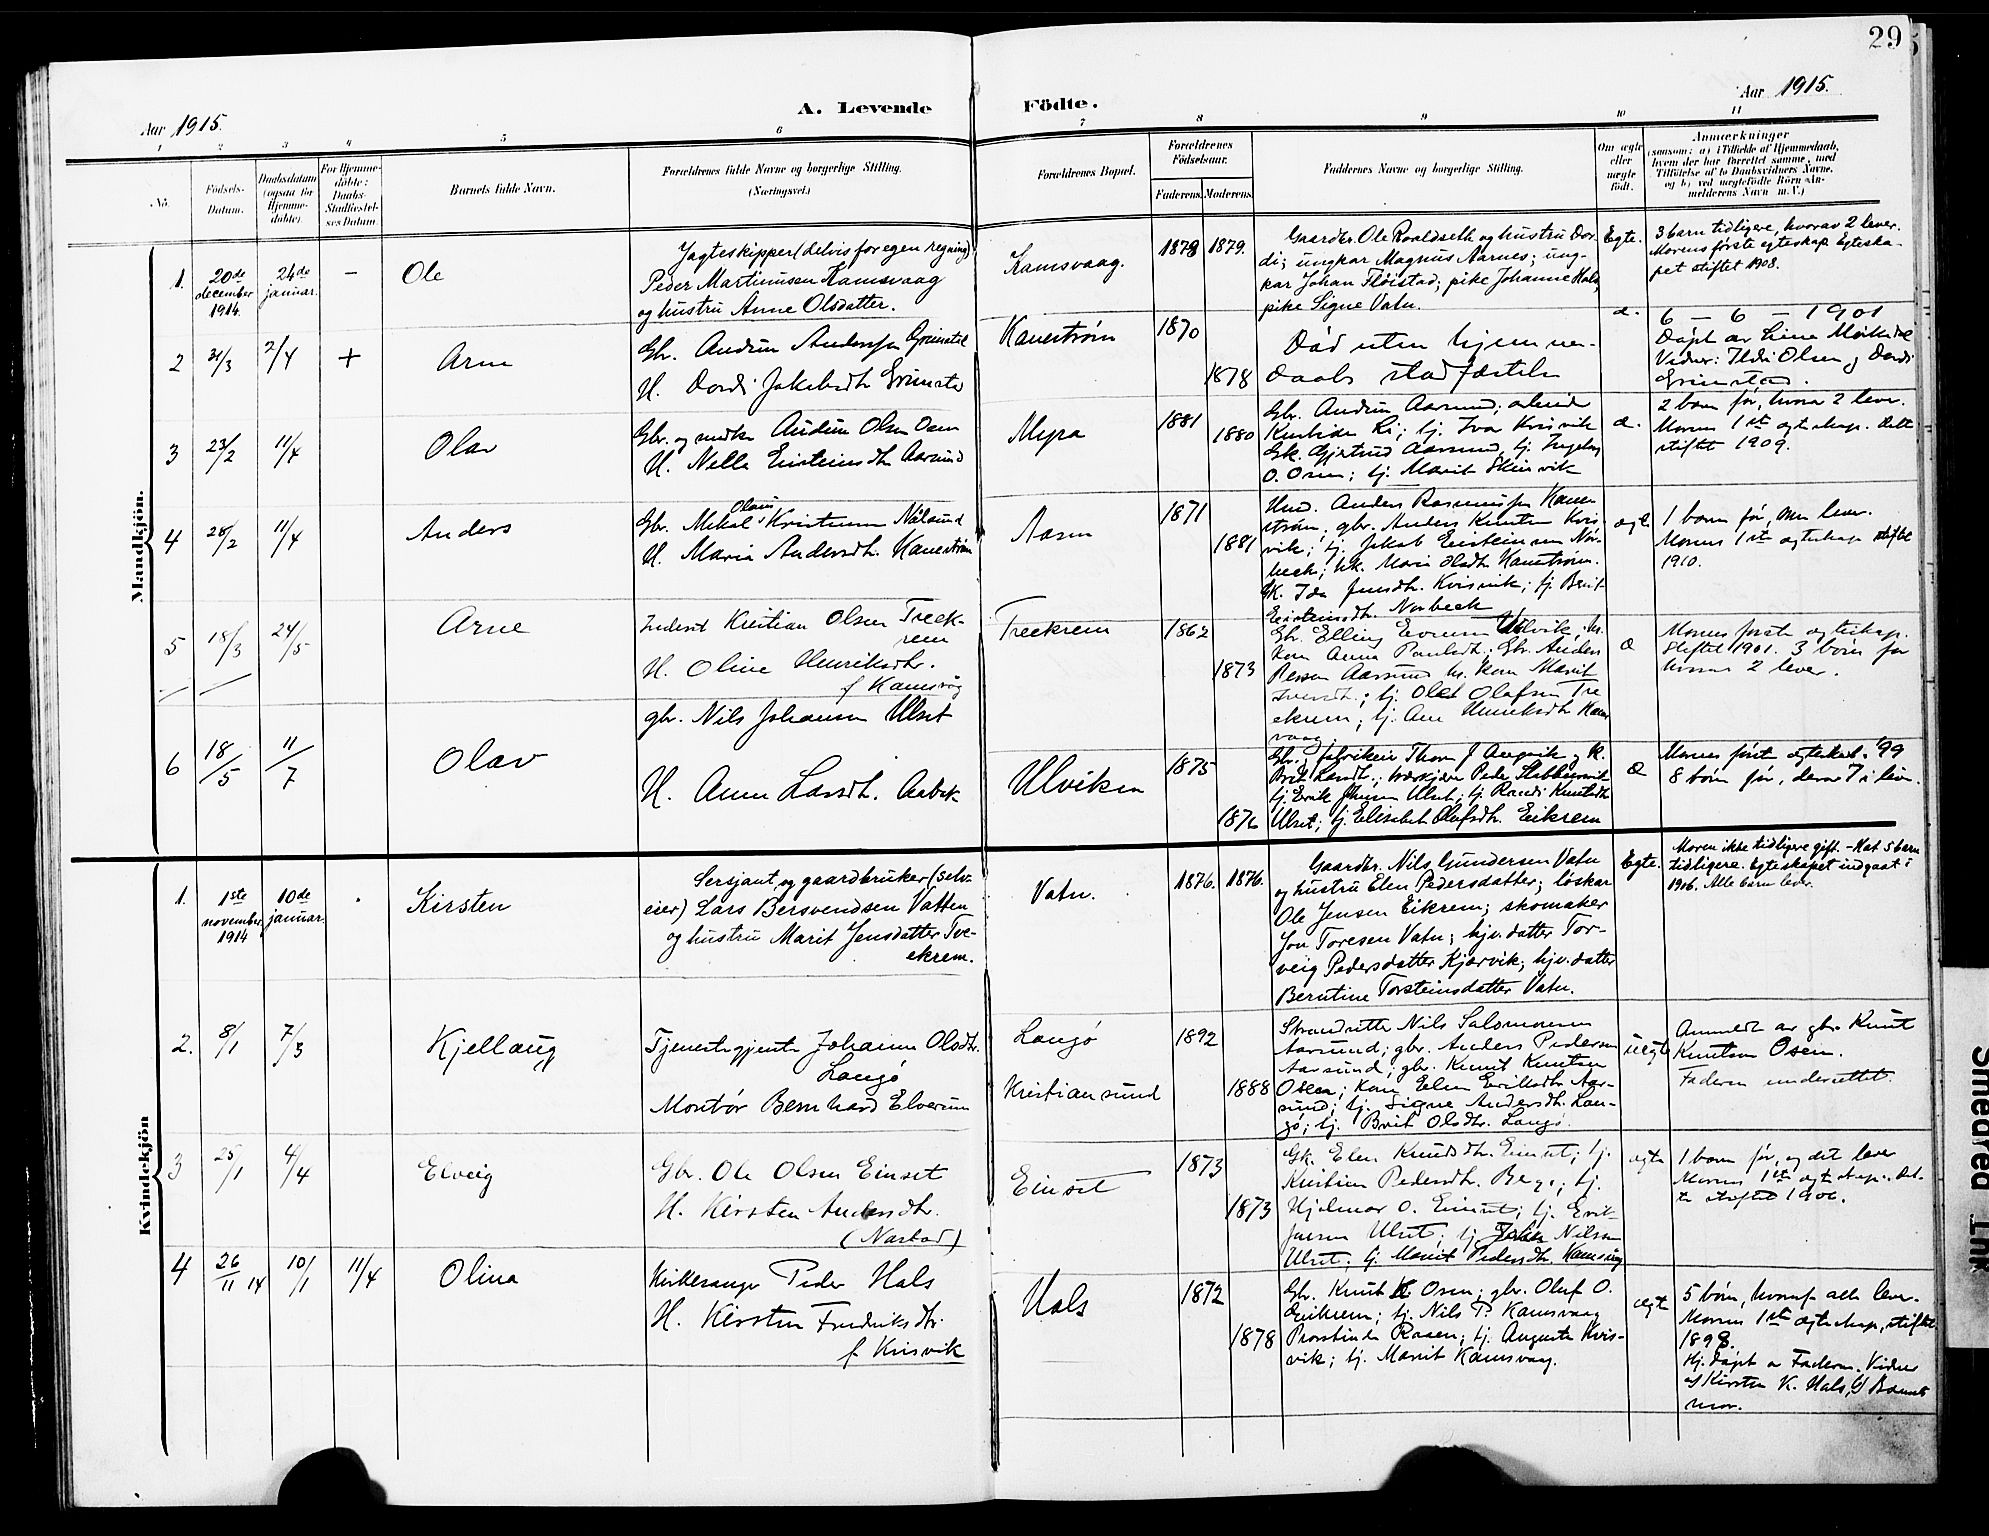 29
Aar 1915.
A. Levende Födte.
Aar 1915.
1 2 3 4 5 6 7 8 9 10 11
No.
Födsels-
Datum.
Daabsdatum
(ogsaa for
Hjemme-
döbte).
For Hjemme-
döbte:
Daabs-
Stadfæstel-
ses Datum.
Barnets fulde Navn.
Forældrenes fulde Navne og borgerlige Stilling.
(Næringsvei.)
Forældrenes Bopæl.
Forældrenes
Födselsaar.
Faderens. Moderens.
Faddernes Navne og borgerlige Stilling.
Om ægte
eller
uægte
födt.
Anmærkninger
(saasom: a) i Tilfælde af Hjemmedaab,
hvem der har forrettet samme, med
Tilföielse af to Daabsvidners Navne,
og b) ved uægtefödte Börn An-
melderens Navn m. V.)
Mandkjön.
1. 20de
december
1914.
24de
januar.
–
Ole
Jagteskipper (delvis for egen regning)
Peder Martinussen Kamsvaag
og hustru Anne Olsdatter.
Kamsvaag.
1879 1879.
Gaardbr. Ole Roaldseth og hustru Dor-
di; ungkar Magnus Aarnes; ung-
kar Johan Flöistad; pike Johanne Hals,
pike Signe Vatn.
Egte.
3 barn tidligere, hvorav 2 lever.
Morens første egteskap. Egteska-
pet stiftet 1908.
2 31/3 2/4 +
Arne
Gbr. Andreas Anderssen Grimstad
H. Dordi Jakobsdtr. Grimstad
Kanestrøm
1870
1878
Död uten hjemme-
daabs stadfæstelse
æ.
6 – 6 – 1901
Døpt av Line
Vidner: Ildri Olsen og Dordi
Grimstad.
3 23/2 11/4
Olav
Gbr. og smed Olsen Osen
H. Nella Eristeinsdtr. Aarsund
Myra
1881
1880
Gbr. Aarsund; arbeider
tj. Ivar Kvisvik
Gk. Gjertrud Aarsund, tj. Ingeborg
O. Osen; tj. Marit Skinvik
æ.
2 barn før, hvorav 2 lever.
Morens 1ste egteskap. Dette
stiftet 1909.
4 28/2 11/4
Anders
Olaus
Gbr. Mikal Kristian Nålsund
H. Maria Andersdtr. Kanestrøm
Aasen
1871
1881
Hmd. Anders Rasmussen Kane-
strøm; gbr. Anders Knutsen Kvis-
vik; tj. Jakob Eristeinsen Nor-
beck; hk. Marie Olsdtr. Kanestrøm.
Gk. Ida Jensdtr. Kvisvik; tj. Berit
Eristeinsdtr. Norbeck
egte
1 barn før, som lever.
Morens 1ste egteskap stiftet
1910.
5 18/3 24/5
Arne
Inderst Kristian Olsen Treek-
rem
H. Oline Henriksdtr.
f. Kamsvåg
Treekrem
1862
1873
Gbr. Elling Evensen Ulvik, hs.
kone Anna Paulsdtr.; Gbr. Anders
Aarsund hs. kone Marit
Iversdtr.; tj. Olaf Olafsen Tre
ekrem; tj. Ane Henriksdtr. Kams
vaag
æ
Morens første egteskap.
Stiftet 1901. 3 barn før
hvorav 2 lever.
6 18/5 11/7
Olav
gbr. Nils Johansen Ulset
H. Anne Larsdtr. Aarbak
Ulviken
1875
1876
Gbr. fabrikeier Thom. J. Angvik og K.
Brit Larsdtr.; Peder Stabbursvik
tj. Erik Jensen Ulset; tj. Randi Knutsdtr
Ulset; tj. Elisabet Olafsdtr. Eikrem
æ
Morens første egteskab. '99
8 børn før, derav 7 i live.
Kvindekjön
1. 1ste
november
1914
10de
januar.
.
Kirsten
Sersjant og gaardbruker (selv-
eier) Lars Bersvendsen Vatten
og hustru Marit Jensdatter Tre-
ekrem.
Vatn.
1876. 1876.
Gaardbr. Nils Gundersen Vatn
og hustru Elen Pedersdatter; løskar
Ole Jensen Eikrem; skomaker
Jon Toresen Vatn; hjv. datter Tor-
veig Pedersdatter Kjørvik; hjv. datter
Berntine Torsteinsdatter Vatn.
Egte.
Moren ikke tidligere gift. – Hat 5 barn
tidligere. Egteskapet indgaat i
1906. Alle barn lever.
2. 8/1 7/3
Kjellaug
Tjenestegjente Johanna Olsdtr.
Langø
Montør Bernhard Elverum
Langö
Kristiansund
1892
1888
Strandsitter Nils Salomonsen
Aarsund; gbr. Anders Pedersen
Aarsund; gbr. Knut Knutsen
Osen; kone Elen Eriksdtr. Aar-
sund; tj. Signe Andersdtr. Lan-
gø; tj. Brit Olsdtr. Langø.
uegte
Anmeldt av gbr. Knut
Knutsen Osen.
Faderen underrettet.
3 25/1 4/4
Elveig
Gbr. Ole Olsen Einset
H. Kirsten Andersdtr.
(Nastad)
Einset
1873
1873
Gk. Elen Knudsdtr. Einset; tj.
Kristine Pedersdtr. Berge; tj.
Hjelmar O. Einset; tj. Erik
Jensen Ulset; tj. Nilsen
Ulset; tj. Marit Pedersdtr Kamsvåg
egte
1 barn før, og det lever
Morens 1ste egteskap. Det-
te stiftet 1906.
4 26/11 14 10/1 11/4
Olina
Kirkesanger Peder Hals
H. Kirsten Fredriksdtr.
f. Kvisvik
Hals
1872
1878
Gbr. Knut K Osen; gbr. Oluf O.
Eikrem; tj. Nils P. Kamsvaag
Prestinde Rosen; tj. Auguste Kvis-
vik; tj. Marit Kamsvaag.
egte
5 børn, hvoraf alle lever.
Morens 1ste egteskap, stiftet
1898.
Hj. døpt av Faderen. Vidner
Kirsten K. Hals, Barnets
mor.
Smedred Ink